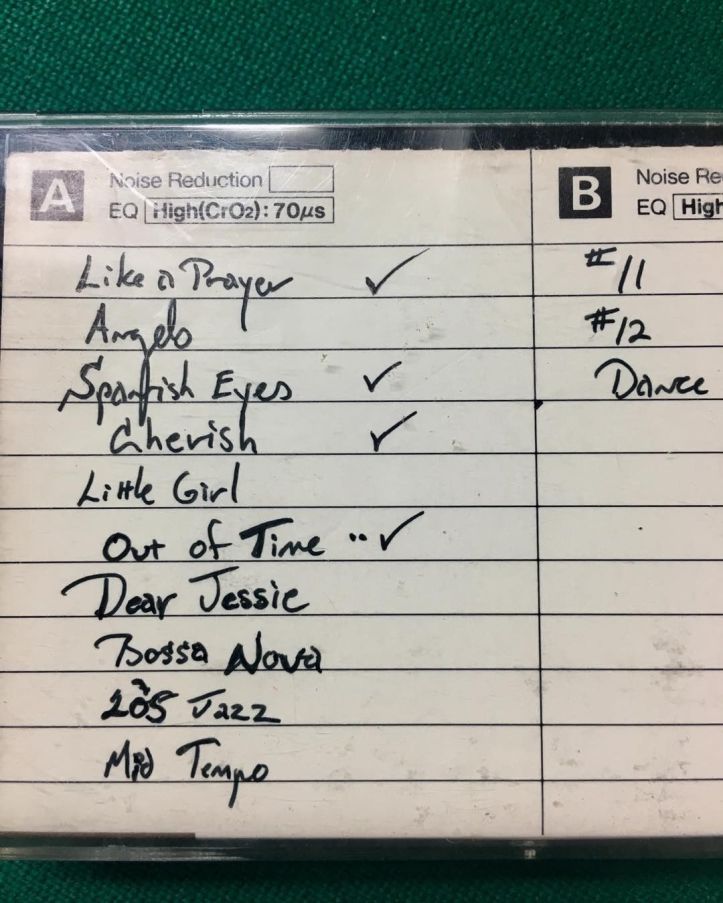 A Noise Reduction
EQ High(CrO2): 70µs
Like a Prayer ✓
Angelo
Spanish Eyes ✓
Cherish ✓
Little Girl
Out of Time .. ✓
Dear Jessie
Bossa Nova
Jazz
Mid Tempo
B Noise Re
EQ High
#11
#12
Dance